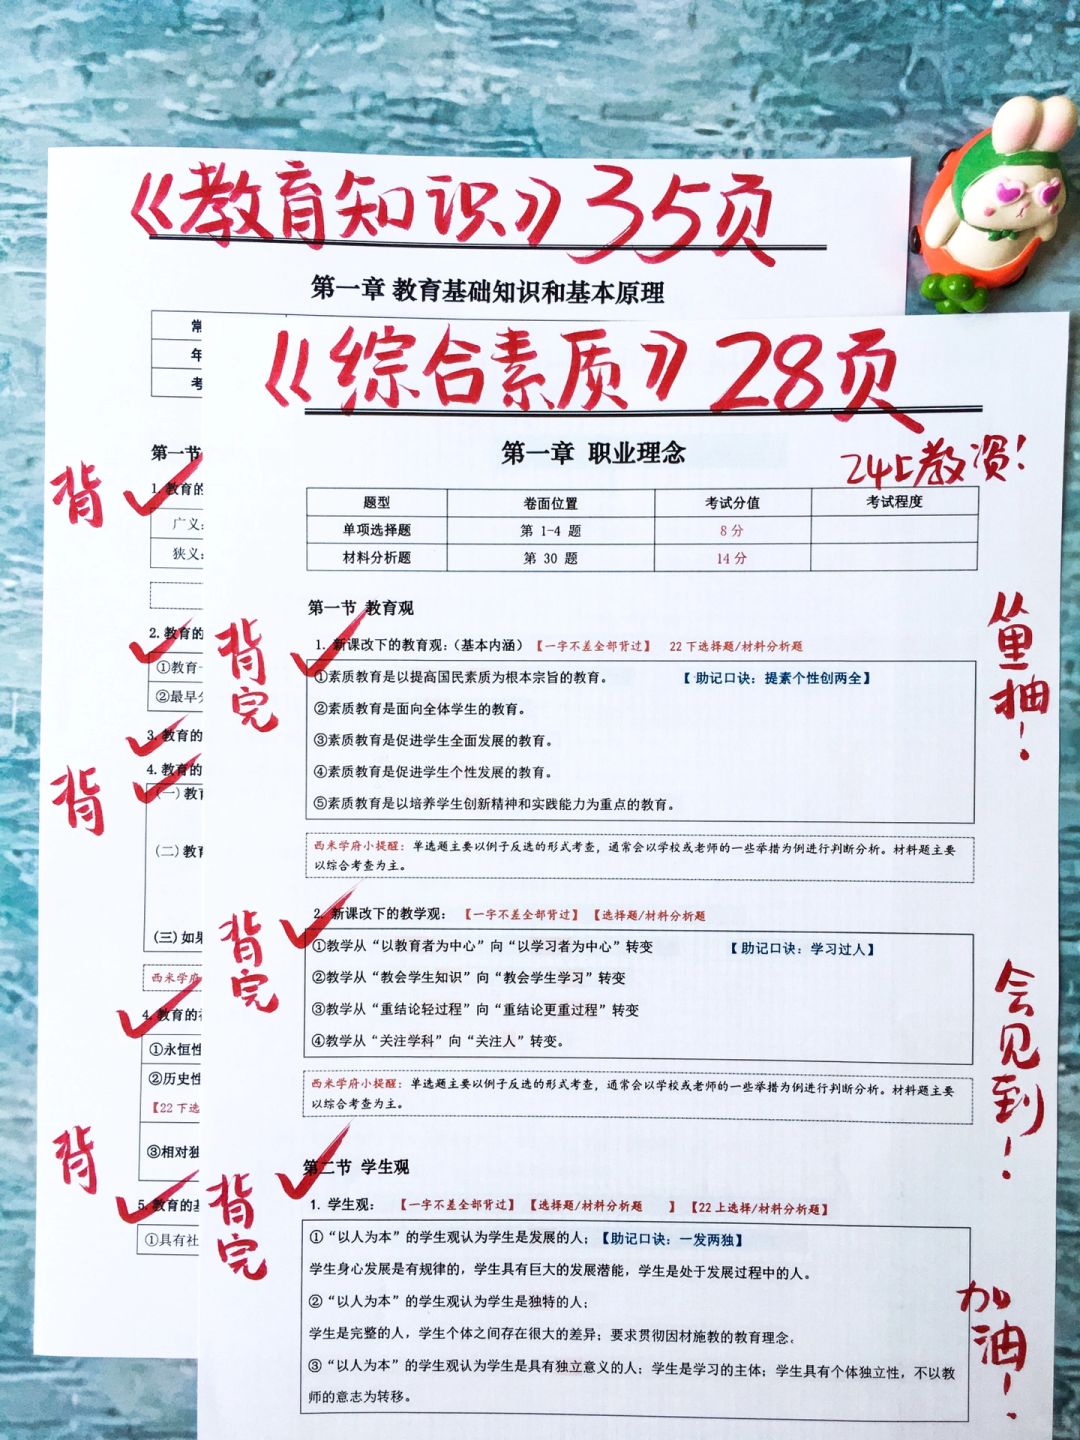 《教育知识》35页
第一章 教育基础知识和基本原理
常
年
考
第一节
1.教育的
广义:
狭义:
2.教育的
①教育
②最早
3.教育的
4.教育的
(一)教育
(二)教育
(三)如果
西米学府
4.教育的
①永恒性
②历史性
【22下选
③相对独
5.教育的基
①具有社
背
背
背
《综合素质》28页
第一章 职业理念
24上教资!
题型 卷面位置 考试分值 考试程度
单项选择题 第 1-4 题 8分
材料分析题 第 30 题 14分
第一节 教育观
1. 新课改下的教育观:(基本内涵)【一字不差全部背过】 22下选择题/材料分析题
①素质教育是以提高国民素质为根本宗旨的教育。 【助记口诀:提素个性创两全】
②素质教育是面向全体学生的教育。
③素质教育是促进学生全面发展的教育。
④素质教育是促进学生个性发展的教育。
⑤素质教育是以培养学生创新精神和实践能力为重点的教育。
西米学府小提醒:单选题主要以例子反选的形式考查,通常会以学校或老师的一些举措为例进行判断分析。材料题主要
以综合考查为主。
2. 新课改下的教学观: 【一字不差全部背过】【选择题/材料分析题
①教学从“以教育者为中心”向“以学习者为中心”转变 【助记口诀:学习过人】
②教学从“教会学生知识”向“教会学生学习”转变
③教学从“重结论轻过程”向“重结论更重过程”转变
④教学从“关注学科”向“关注人”转变。
西米学府小提醒:单选题主要以例子反选的形式考查,通常会以学校或老师的一些举措为例进行判断分析。材料题主要
以综合考查为主。
第二节 学生观
1. 学生观: 【一字不差全部背过】【选择题/材料分析题 】【22上选择/材料分析题】
①“以人为本”的学生观认为学生是发展的人;【助记口诀:一发两独】
学生身心发展是有规律的,学生具有巨大的发展潜能,学生是处于发展过程中的人。
②“以人为本”的学生观认为学生是独特的人;
学生是完整的人,学生个体之间存在很大的差异;要求贯彻因材施教的教育理念。
③“以人为本”的学生观认为学生是具有独立意义的人;学生是学习的主体;学生具有个体独立性,不以教
师的意志为转移。
背完
背完
背完
从里抽!
会见到!
加油!